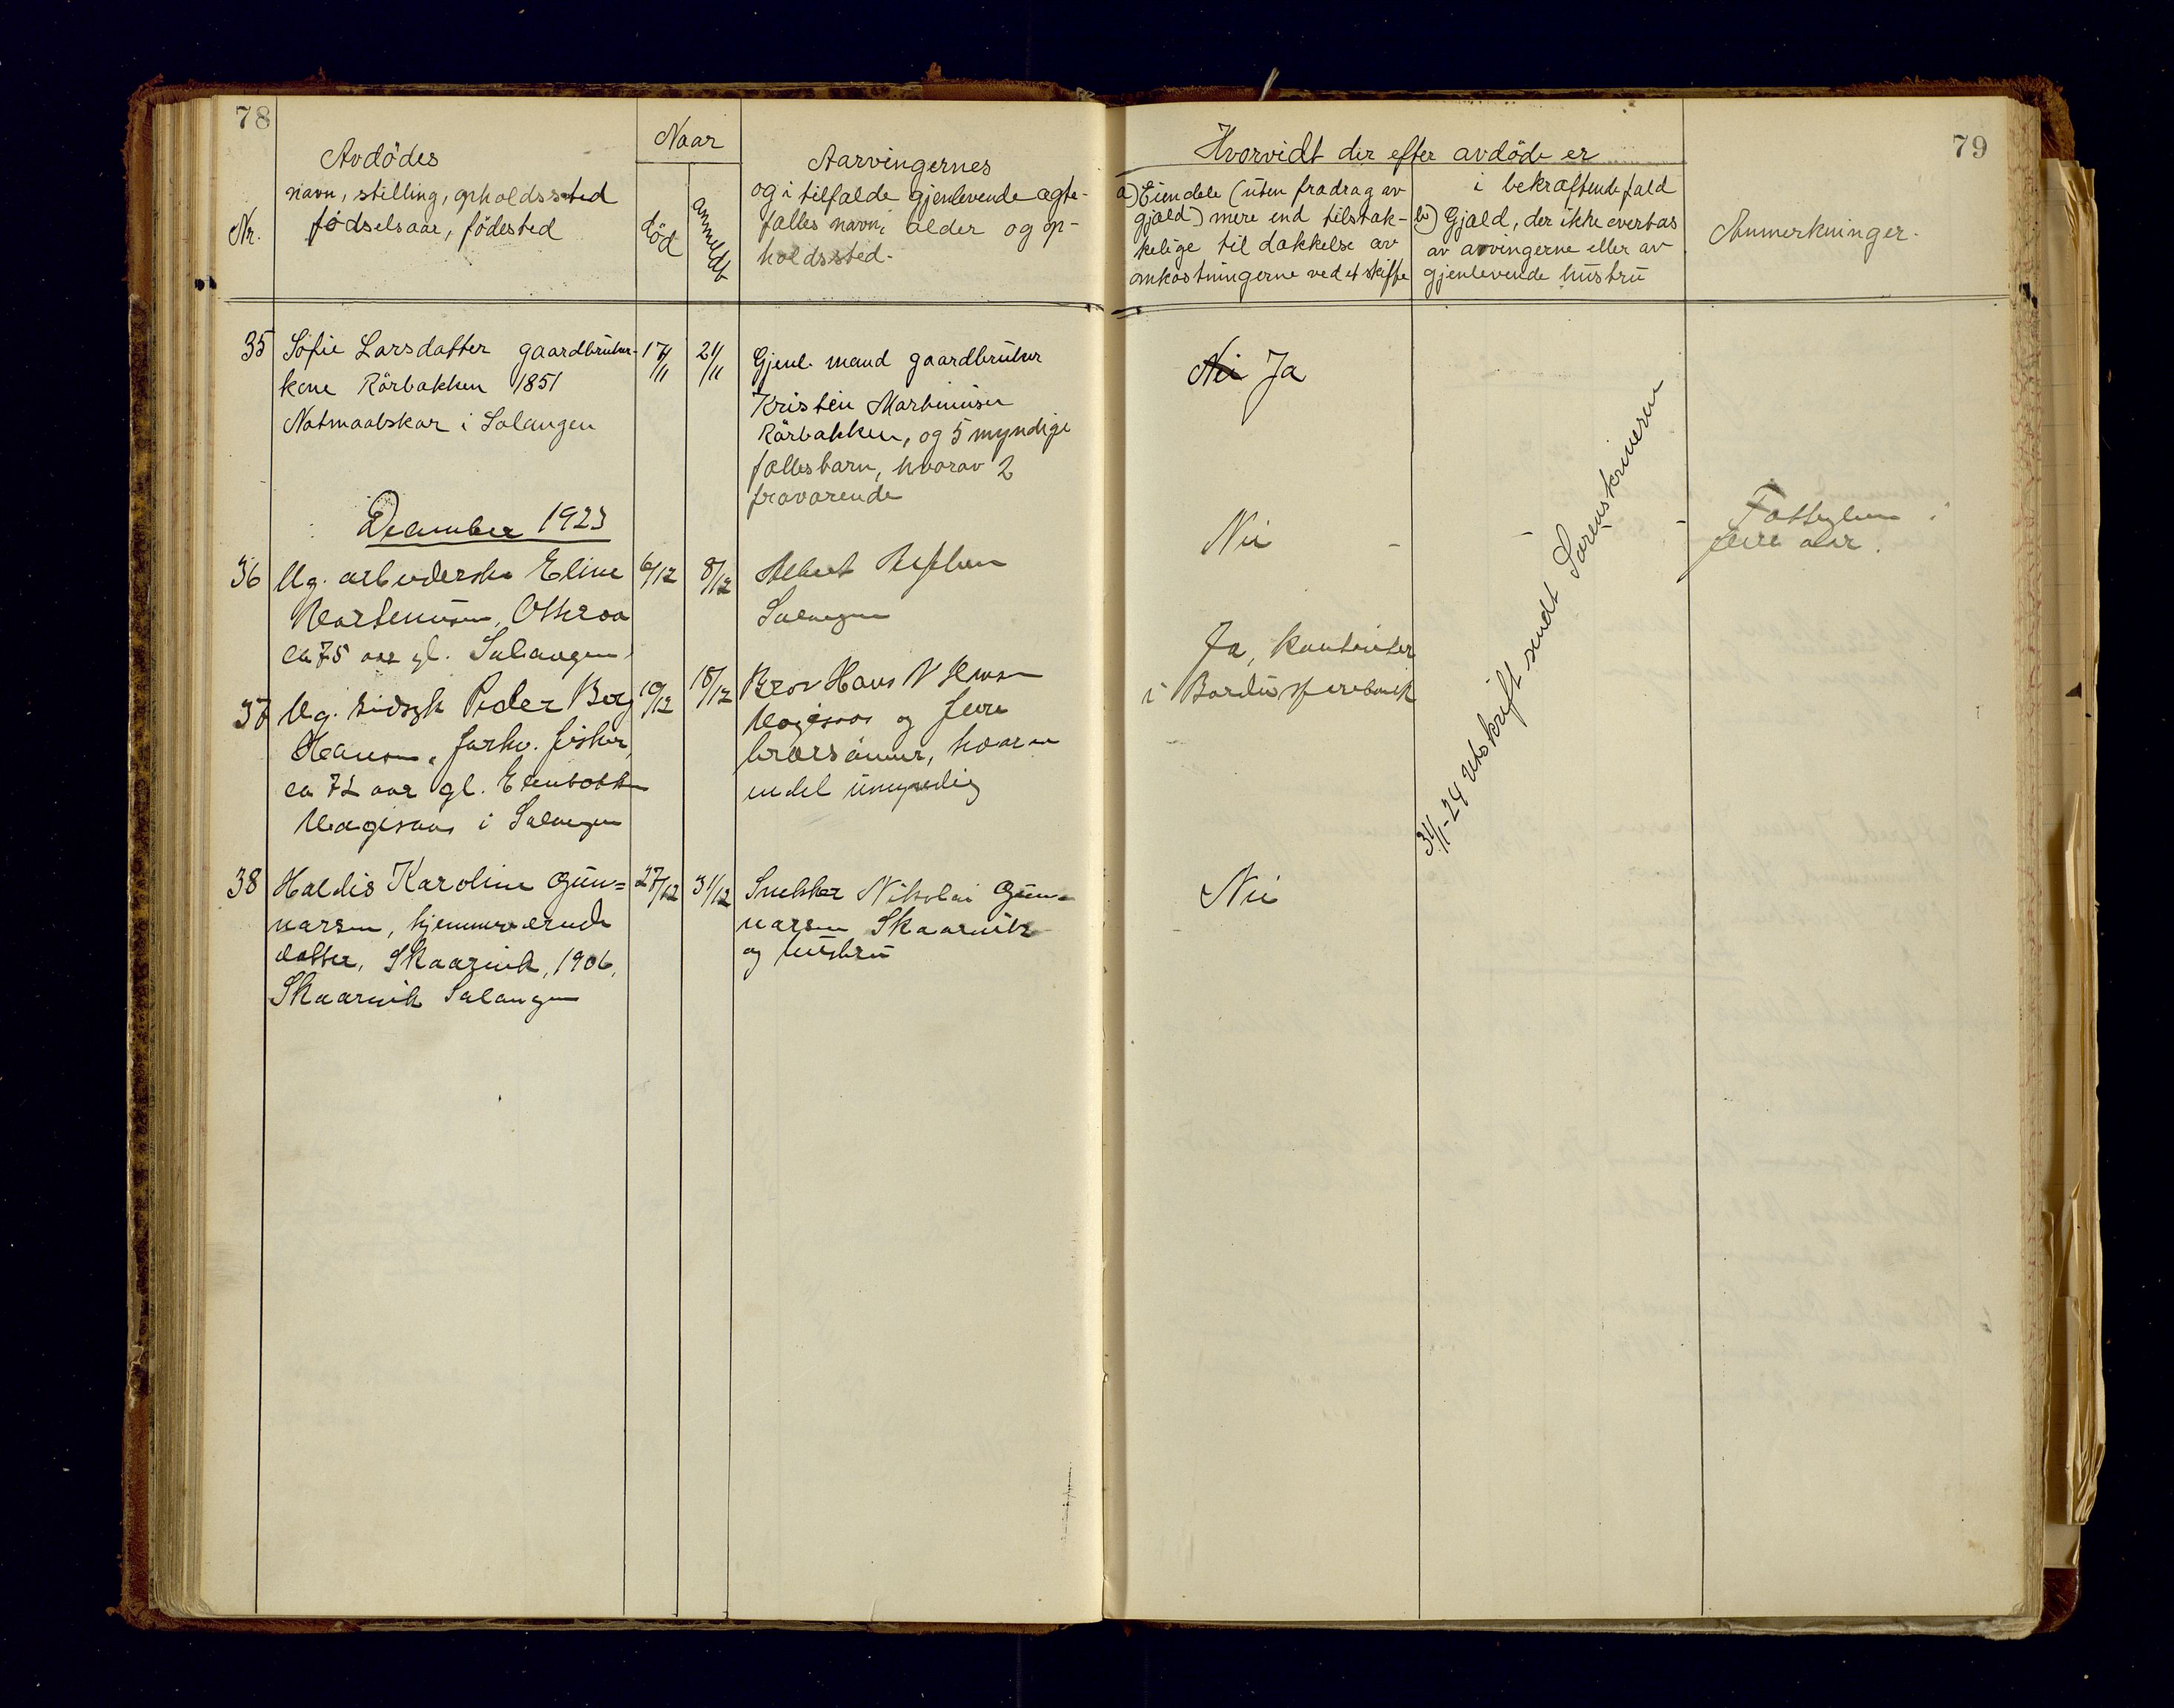 78
79
Nr.
Avdödes
navn, stilling, opholdssted
födselsaar, födested
Naar
död
anmeldt
Aarvingernes
og i tilfælde gjenlevende ægte-
fælles navn, alder og op-
holdssted.
Hvorvidt der efter avdöde er
a) Eiendele (uten fradrag av
gjæld) mere end tilstræk-
kelige til dækkelse av
omkostningerne ved et skifte
i bekræftende fald
b) Gjæld, der ikke overtas
av arvingerne eller av
gjenlevende hustru
Anmerkninger.
35
Sofie Larsdatter gaardbruker-
kone Rörbakken 1851
i Salangen
17/11
21/11
Gjenl. mand gaardbruker
Kristen Martinusen
Rörbakken, og 5 myndige
fællesbarn, hvorav 2
fraværende
Nei Ja
December 1923
36
Ug. arbeiderske Eline
Martinusen,
ca 75 aar gl. Salangen
6/12
8/12
Albert
Salangen
Nei
flere aar.
37
Ug. Peder Berg
Hansen, forhv. fisker,
ca 72 aar gl.
i Salangen
10/12
18/12
Bror Hans
og flere
brorsönner, hvorav
endel umyndig
Ja, Kontanter
i Bardu sparebank
31/1-24 Utskrift sendt Sorenskriveren
38
Haldis Karoline Gun=
narsen, hjemmeværende
datter, Skaarvik, 1906,
Skaarvik Salangen
27/12
31/12
Snekker Nikolai Gun-
narsen Skaarvik
og hustru
Nei